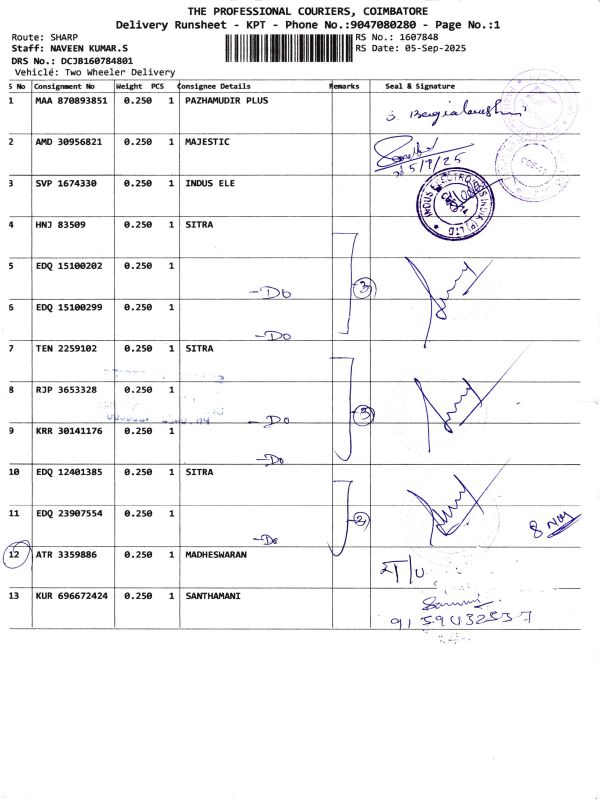 THE PROFESSIONAL COURIERS, COIMBATORE
Delivery Runsheet - KPT - Phone No.:9047080280 - Page No.:1
Route: SHARP
RS No.: 1607848
Staff: NAVEEN KUMAR.S
RS Date: 05-Sep-2025
DRS No.: DCJB160784801
Vehicle: Two Wheeler Delivery
S No Consignment No Weight PCS Consignee Details Remarks Seal & Signature
1 MAA 870893851 0.250 1 PAZHAMUDIR PLUS
2 AMD 30956821 0.250 1 MAJESTIC
5/9/25
3 SVP 1674330 0.250 1 INDUS ELE
INDUS ELECTRONICS INDIA (P) LTD
4 HNJ 83509 0.250 1 SITRA
5 EDQ 15100202 0.250 1
-Do 3
6 EDQ 15100299 0.250 1
-Do
7 TEN 2259102 0.250 1 SITRA
8 RJP 3653328 0.250 1
-Do 3
9 KRR 30141176 0.250 1
-Do
10 EDQ 12401385 0.250 1 SITRA
11 EDQ 23907554 0.250 1
2 8 Nos
-Do
12 ATR 3359886 0.250 1 MADHESWARAN
13 KUR 696672424 0.250 1 SANTHAMANI